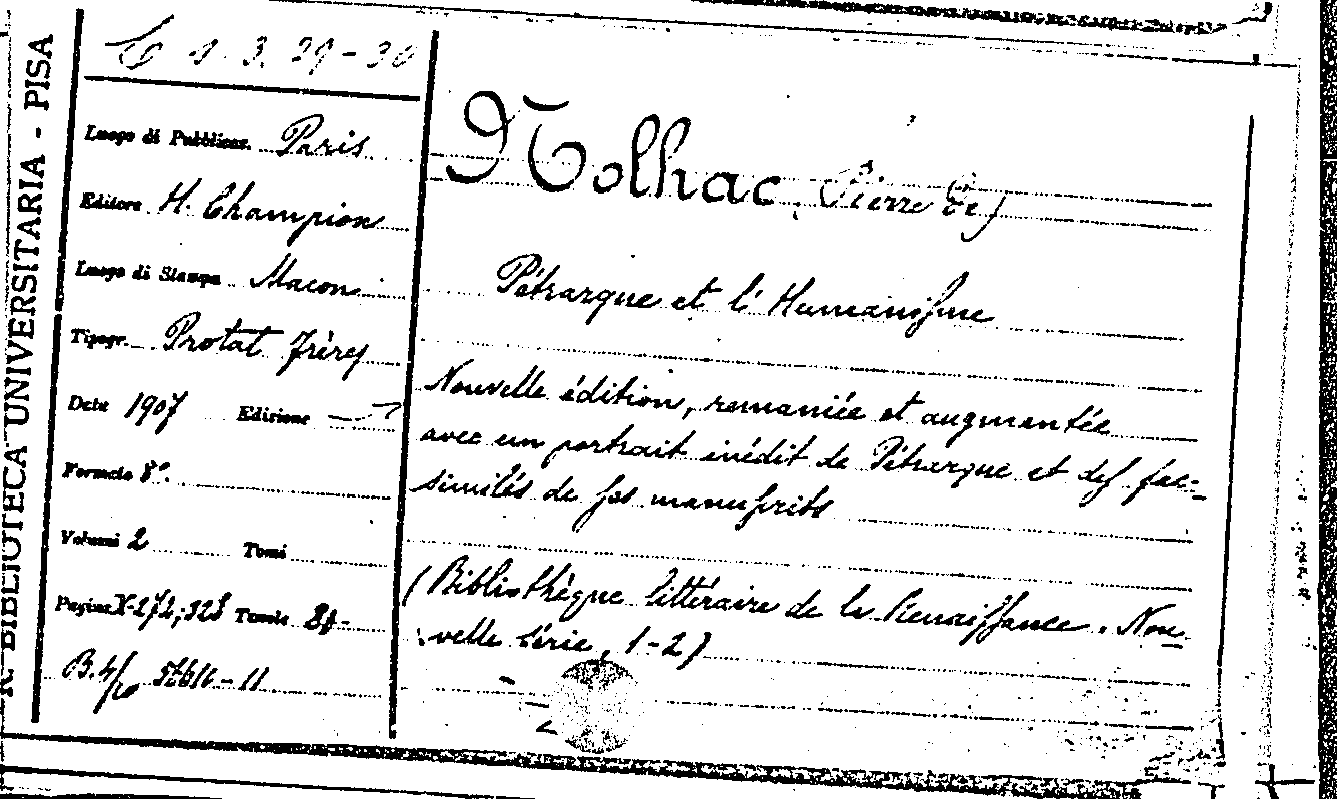 R. BIBLIOTECA UNIVERSITARIA - PISA
C 1. 3. 29-30
Luogo di Pubblicaz. Paris
Editore H. Champion
Luogo di Stampa Macon
Tipogr. Protat frères
Data 1907 Edizione
Formato 8º.
Volumi 2 Tomi
Pagine X-272, 328 Tavole
B.4/10
Nolhac, Pierre (De)
Pétrarque et l'Humanisme
Nouvelle édition, remaniée et augmentée
avec un portrait inédit de Pétrarque et des fac-
similés de ses manuscrits
(Bibliothèque littéraire de la Renaissance. Nou-
velle série, 1-2)